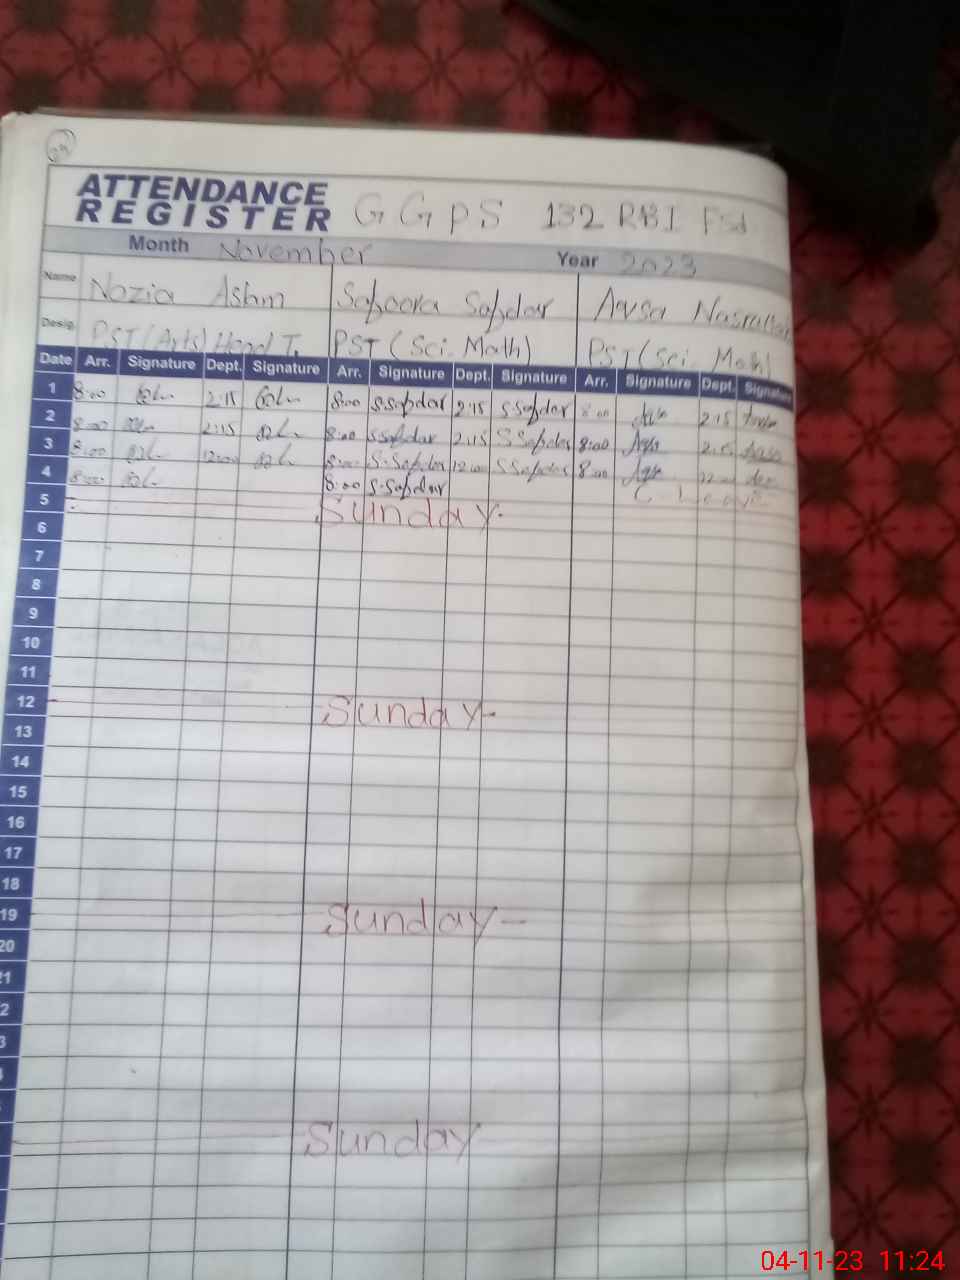 ATTENDANCE
REGISTER GGPS 132 RBI Fsd.
Month November Year 2023
Name Nozia Aslam Safoora Safdar Aqsa Nasrullah
Desig. PST (Arts) Head T. PST (Sci. Math) PST (Sci. Math)
Date Arr. Signature Dept. Signature Arr. Signature Dept. Signature Arr. Signature Dept. Signature
1 8:00 2:15 8:00 S.Safdar 2:15 S.Safdar 8:00 2:15
2 8:00 2:15 8:00 S.Safdar 2:15 S.Safdar 8:00 Aqsa 2:15 Aqsa
3 8:00 12:00 8:00 S.Safdar 12:00 S.Safdar 8:00 Aqsa 12:00
4 8:00 8:00 S.Safdar C. Leave
5 Sunday.
6
7
8
9
10
11
12 Sunday-
13
14
15
16
17
18
19 Sunday-
20
21
2
3
Sunday
04-11-23 11:24